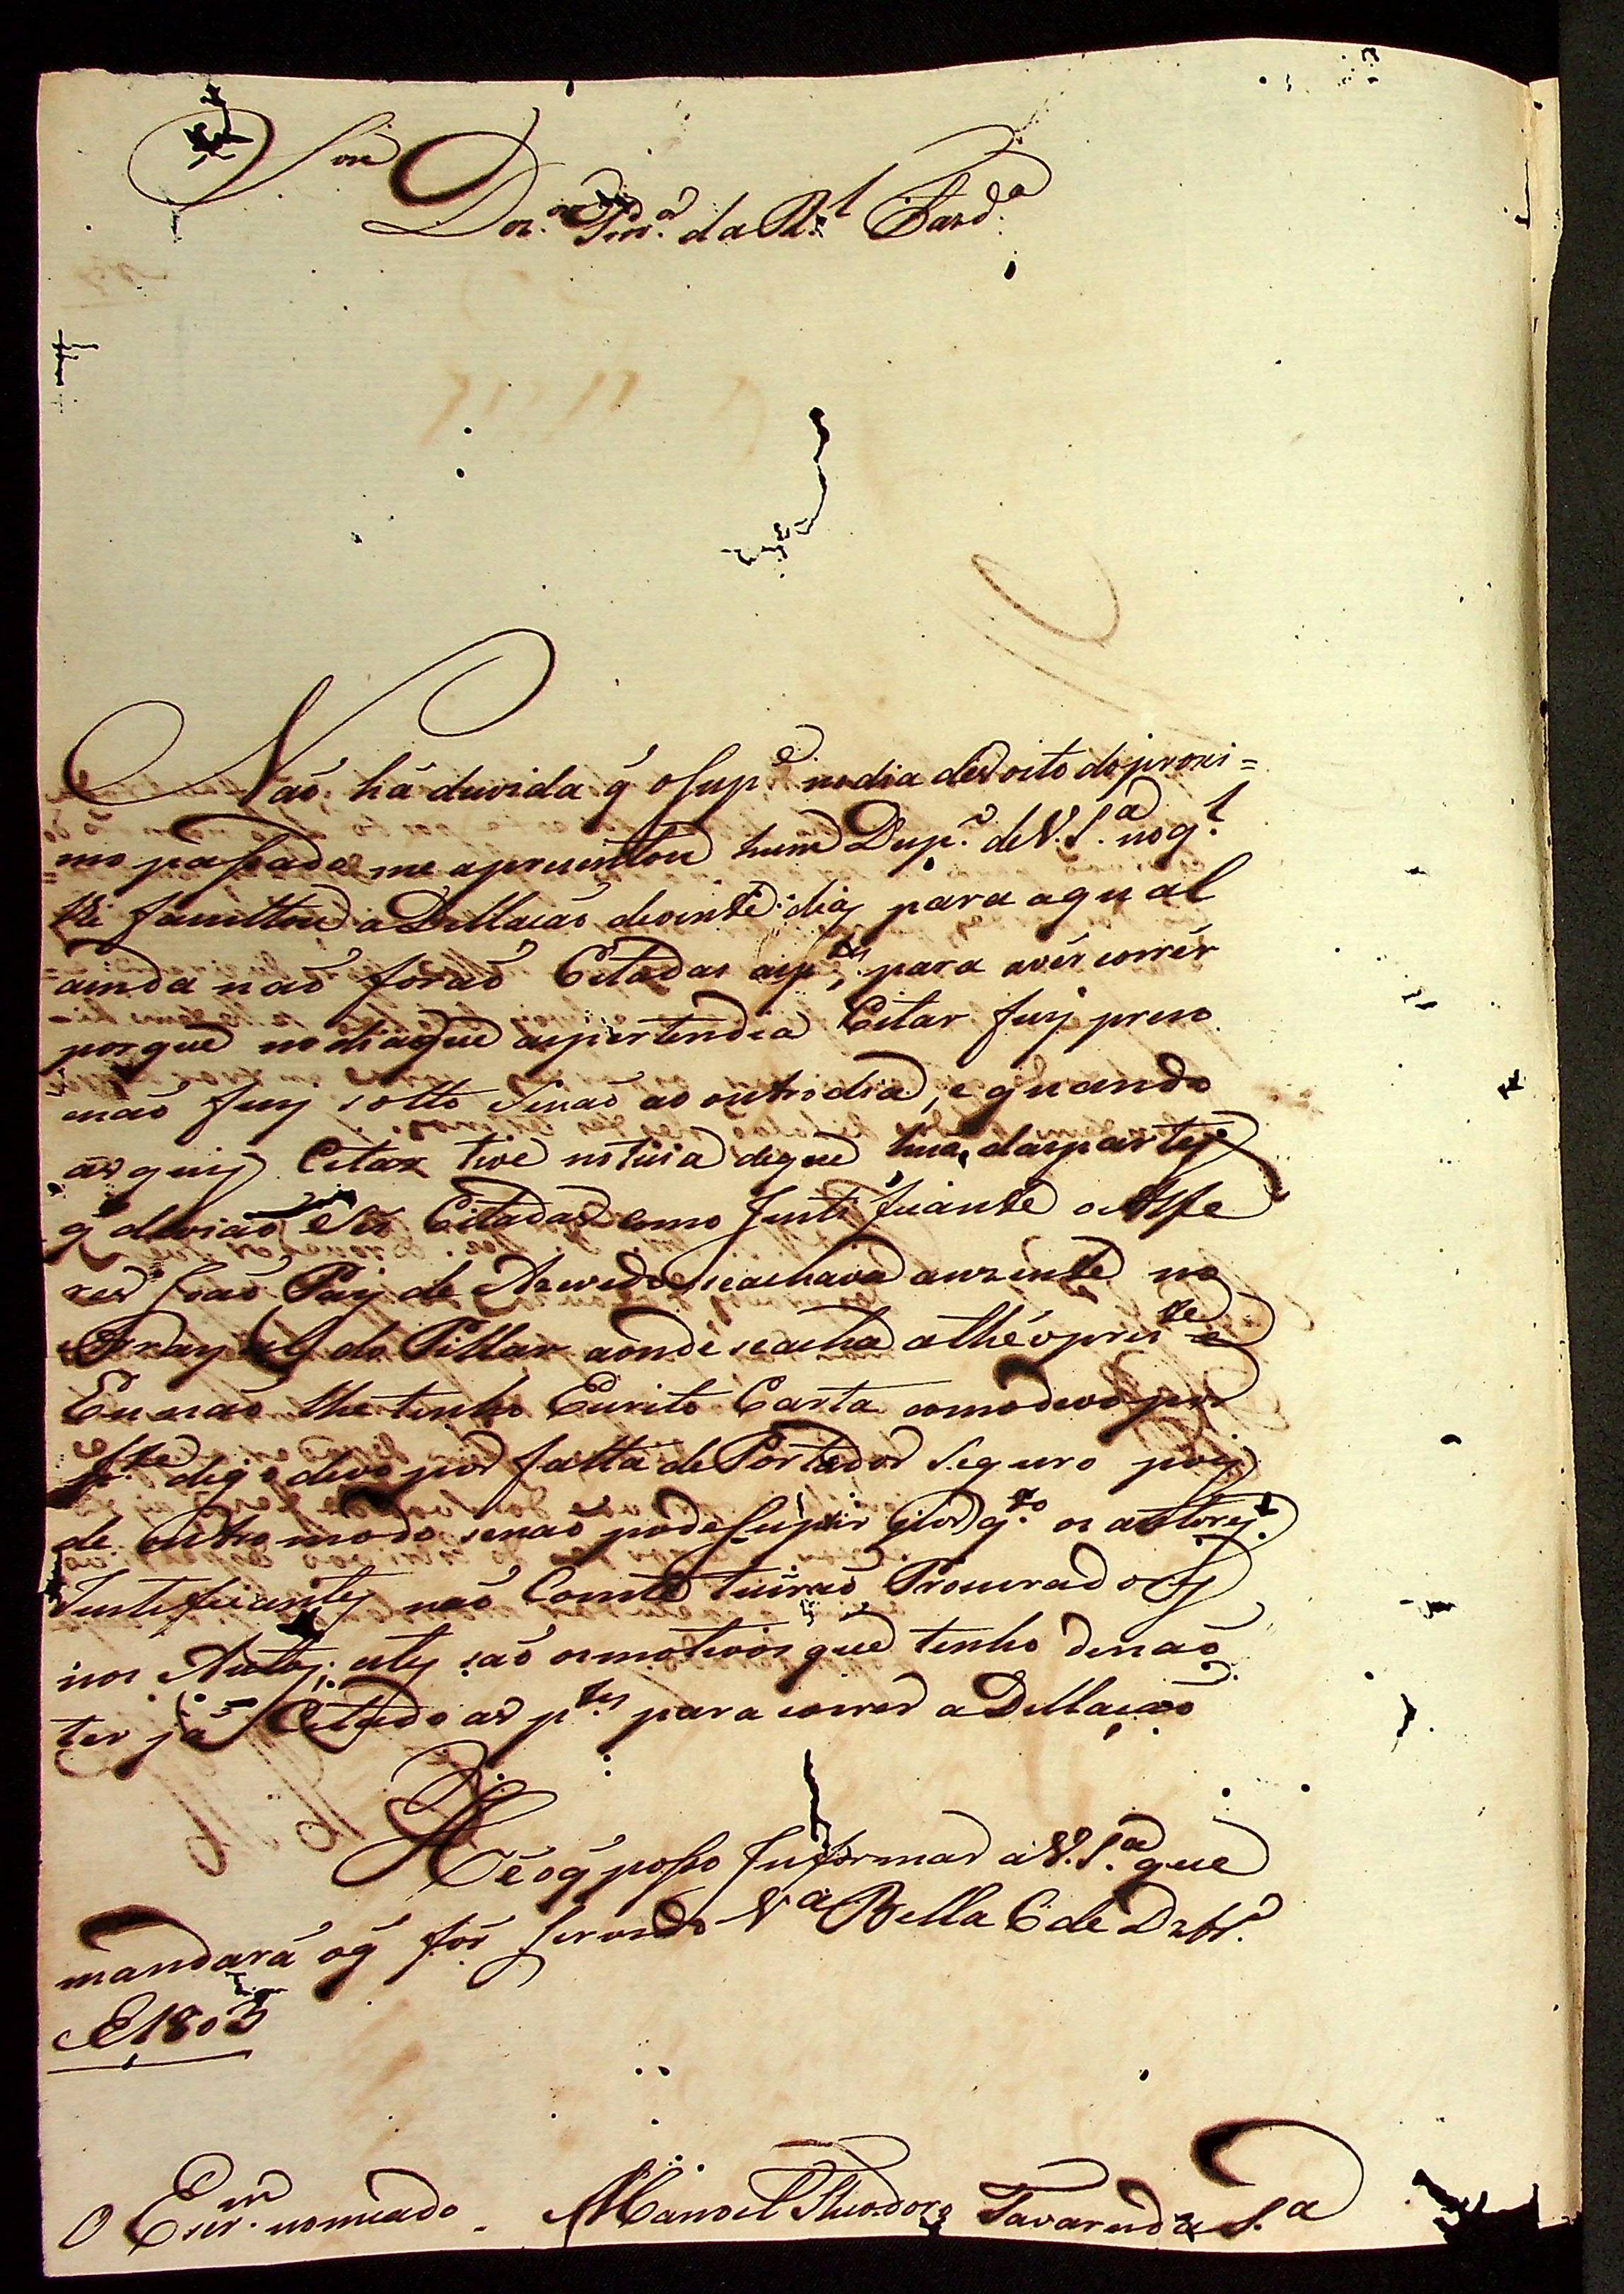 Snr
Dor. Pror. da Rl. Fazda.
Não há duvida q̃ o Supe. no dia dezoito do proxi=
mo passado me aprezentou hum Despo. de V. Sa. no ql.
lhe faculttou a Dillação de vinte dias para a qual
ainda não forão Citadas as ptes. para a vêr corrêr
porque no dia que as pertendia Citar fuy prezo
e não fuy solto senão ao outro dia, e quando
as quis Citar tive noticia de que hua das partes
q̃ devião ser Citadas como Justificante o Alfe
res João Pays de Azevedo se achava auzente no
Arrayal do Pillar aonde se acha athé o prezte. e
Eu não lhe tenho Escrito Carta como devo por
pte. digo devo por falta de Portador Seguro poys
de outro modo se não pode Suprir por qto. os autores
Justificantes não Constetuirão Procuradores
nos Autos; estes são os motivos que tenho de não
ter já Citado as ptes. para correr a Dillação
He o q̃ posso Informar a V. Sa. que
mandará o q̃ fôr servido Va. Bella 6 de Dzbro.
E 1803
O Escrm. nomeado. Manoel Theodoro Tavares da Sa.